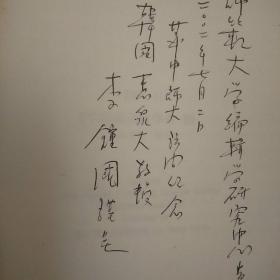 師範大学編輯学研究中心
二〇〇二年七月二日
華中師大訪問紀念
韓國惠泉大教授
李鐘國